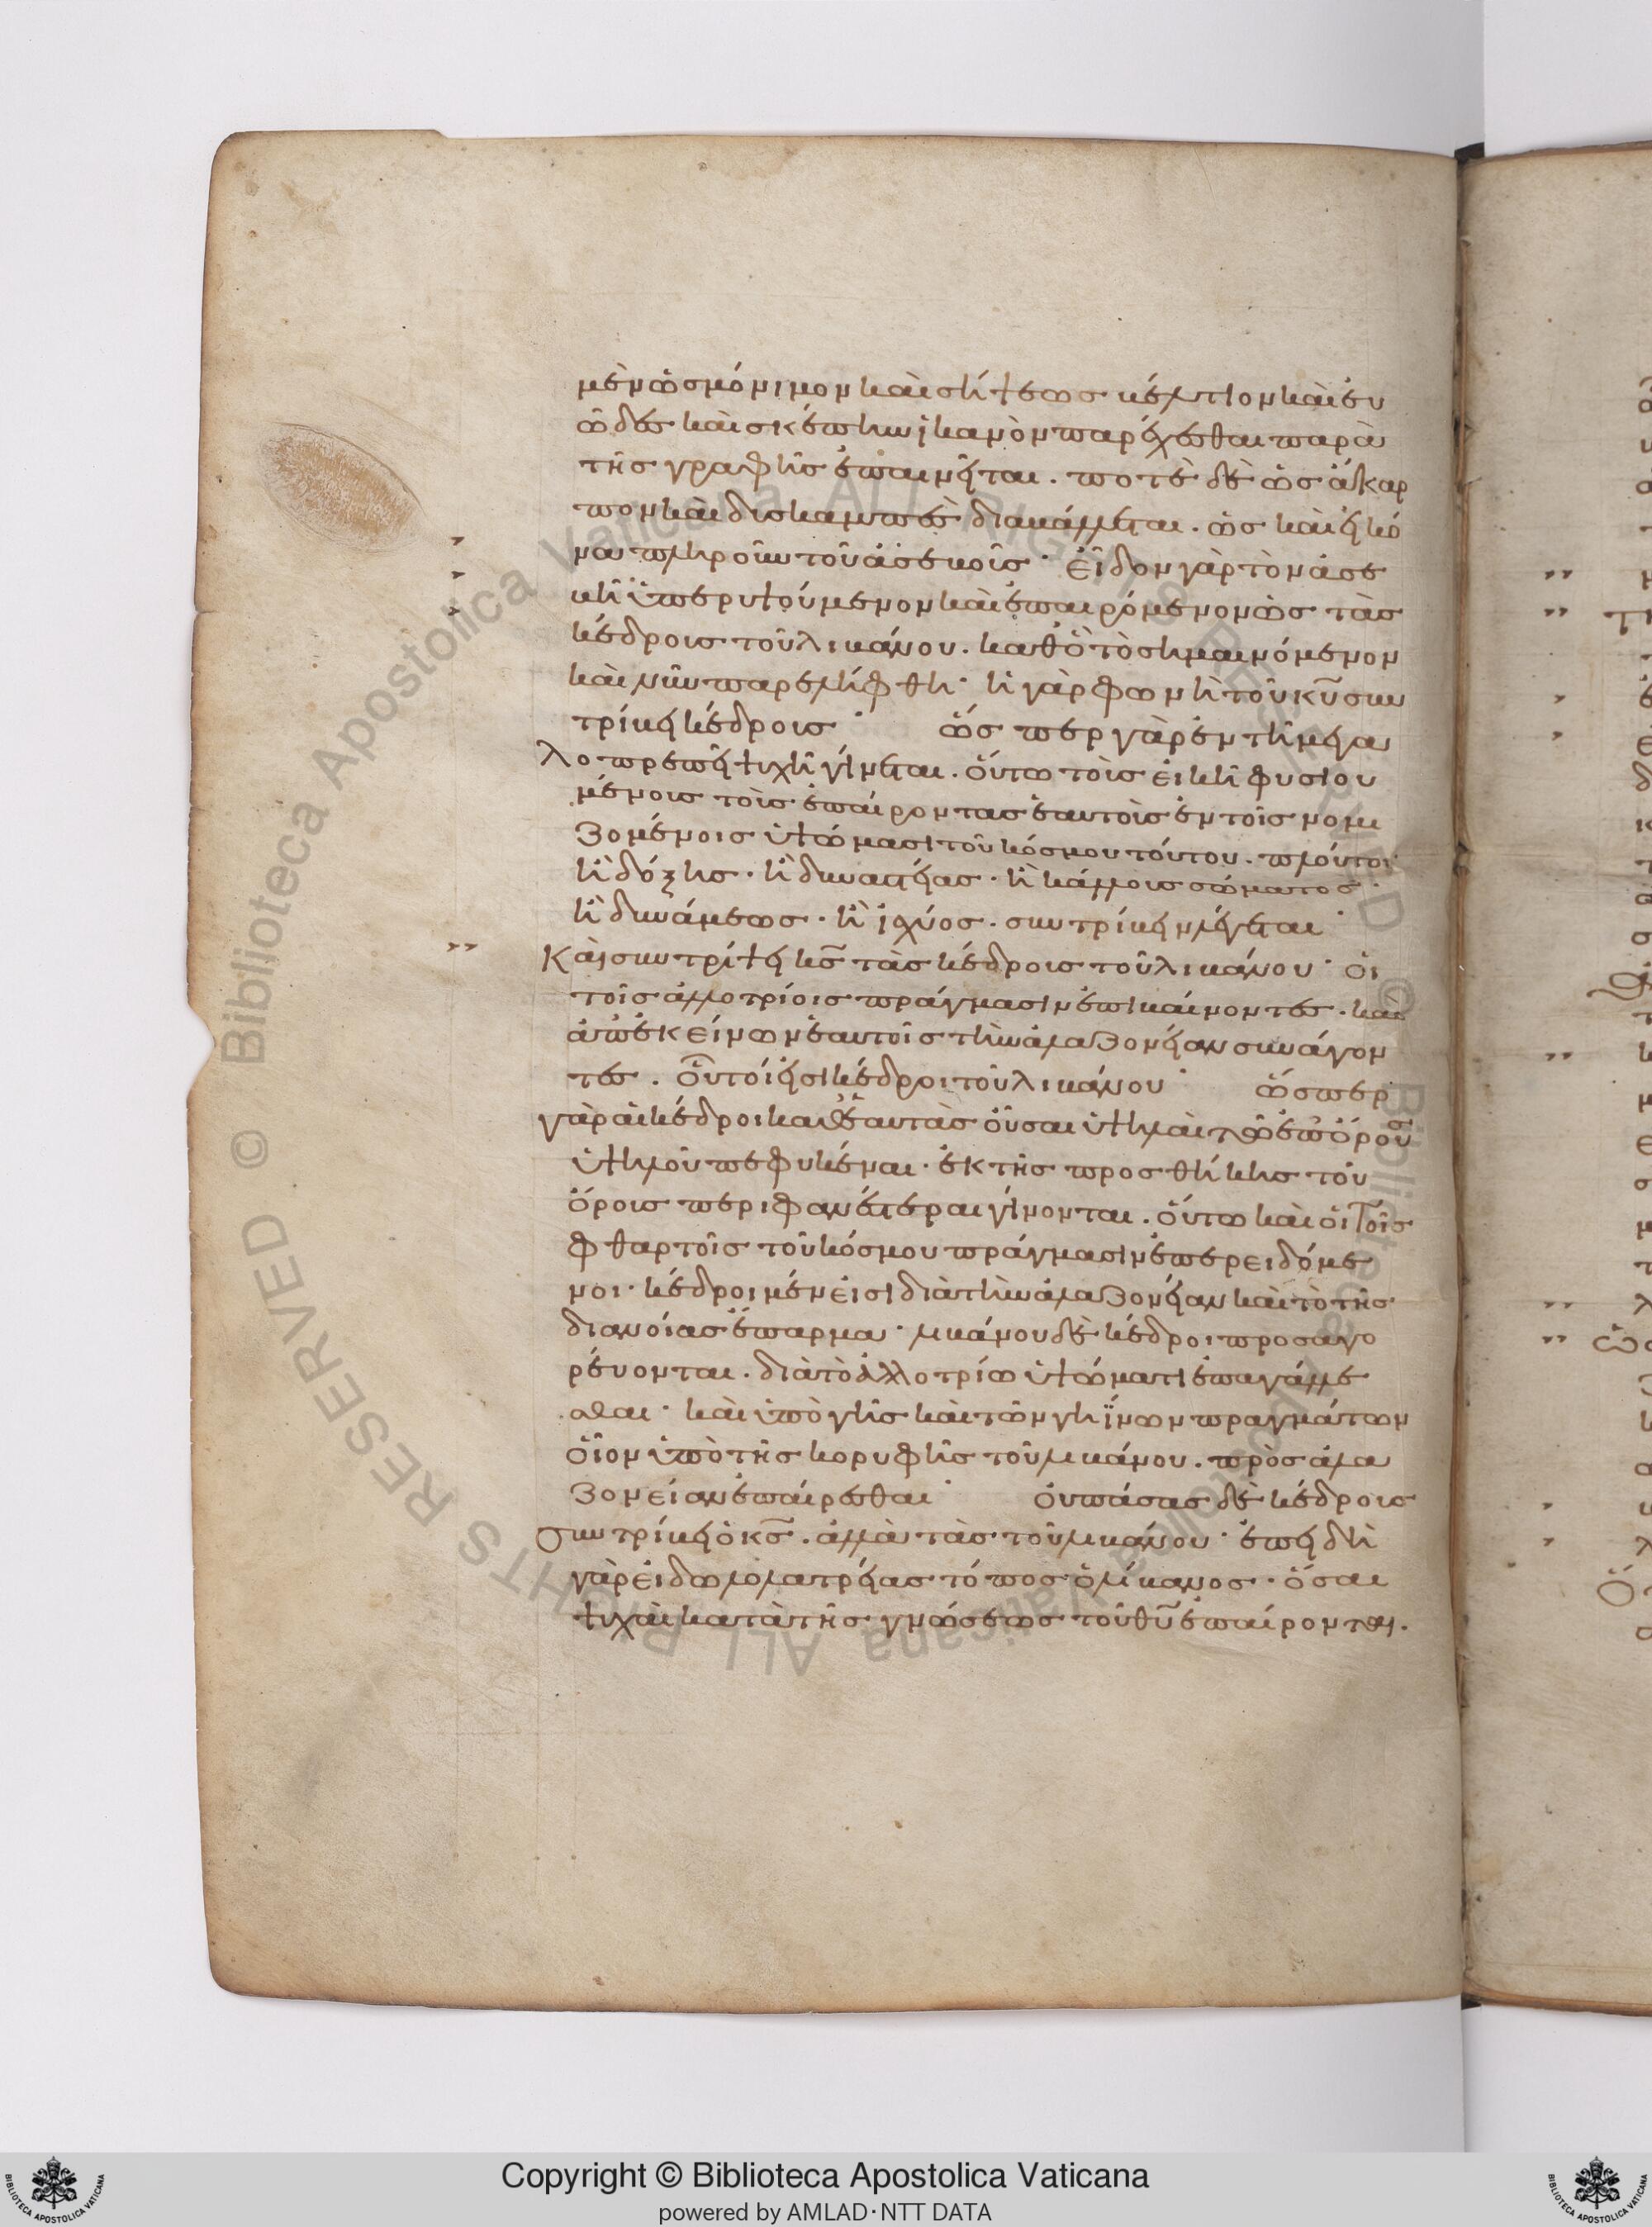 μὲν ὡς μόνιμον καὶ σήψεως κρεῖττον καὶ εὐ
ῶδες καὶ σκέπην ἱκανὸν παρέχεσθαι παρὰ
τῆς γραφῆς ἐπαινεῖται. ποτὲ δὲ ὡς ἄκαρ
πον καὶ δυσκαμπὲς διαβάλλεται. ὡς καὶ εἰκό
να πληροῦν τοῦ ἀσεβοῦς· εἶδον γὰρ τὸν ἀσε
βῆ ὑπερυψούμενον καὶ ἐπαιρόμενον ὡς τὰς
κέδρους τοῦ λιβάνου. καθ' ὃ τὸ σημαινόμενον
καὶ νῦν παρελήφθη· ἡ γὰρ φωνὴ τοῦ κυ̅ συν
τρίβει κέδρους· ὥσπερ γὰρ ἐν τῆ μεγα
λοπρεπεῖ ψυχῆ γίνεται. οὕτω τοὺς εἰκῆ φυσιου
μένους τοὺς ἐπαίροντας ἑαυτοὺς ἐν τοῖς νομι
ζομένοις ὑψώμασι τοῦ κόσμου τούτου. πλούτου
ἢ δόξης. ἢ δυναστείας. ἢ κάλλους σώματος.
ἢ δυνάμεως. ἢ ἰσχύος. συντρίβειν λέγεται·
Καὶ συντρίψει κς̅ τὰς κέδρους τοῦ λιβάνου· οἱ
τοῖς ἀλλοτρίοις πράγμασιν ἐπιβαίνοντες. καὶ
ἀπ' ἐκείνων ἑαυτοῖς τὴν ἀλαζονείαν συνάγον
τες. οὗτοί εἰσι κέδροι τοῦ λιβάνου· ὥσπερ
γὰρ αἱ κέδροι καθ' ἑαυτὰς οὖσαι ὑψηλαὶ τῷ ἐπ' ὄρους
ὑψηλοῦ πεφυκέναι. ἐκ τῆς προσθήκης τοῦ
ὄρους περιφανέστεραι γίνονται. οὕτω καὶ οἱ τοῖς
φθαρτοῖς τοῦ κόσμου πράγμασιν ἐπερειδόμε
νοι. κέδροι μέν εἰσι διὰ τὴν ἀλαζονείαν καὶ τὸ τῆς
διανοίας ἔπαρμα. λιβάνου δὲ κέδροι προσαγο
ρεύονται. διὰ τὸ ἀλλοτρίω ὑψώματι ἐπαγάλλε
σθαι· καὶ ὑπὸ γῆς καὶ τῶν γηΐνων πραγμάτων
οἷον ὑπὸ τῆς κορυφῆς τοῦ λιβάνου. πρὸς ἀλα
ζονείαν ἐπαίρεσθαι· οὐ πάσας δὲ κέδρους
συντρίβει ὁ κς̅. ἀλλὰ τὰς τοῦ λιβάνου· ἐπειδὴ
γὰρ εἰδωλολατρείας τόπος ὁ λίβανος. ὅσαι
ψυχαὶ κατὰ τῆς γνώσεως τοῦ θυ̅ ἐπαίρονται.
Copyright © Biblioteca Apostolica Vaticana
powered by AMLAD·NTT DATA